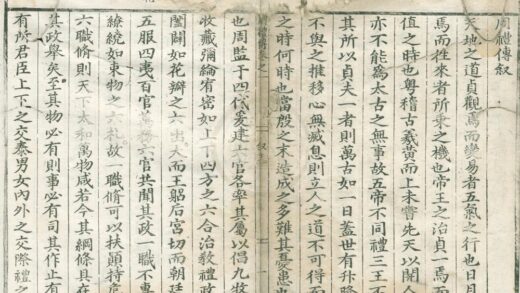 周禮傳敘
天地之道貞觀焉而變易者五氣之行也日月
焉而往來者所乘之機也帝王之治貞一焉
值之時也粵稽古羲黃而上未嘗先天以開人
亦不能為太古之無事故五帝不同禮三王不
其所以貞夫一者則萬古如一日蓋世有升降
不與之推移心無滅息則立人之道不可得而
之時何時也當殷之末造成之多難其憂患也
也周監于四代爰建六官各率其屬以倡九牧
收藏彌綸宥密如上下四方之六合治教禮政
闔闢如花瓣之六出大而王躬后宮切而朝廷
五服四夷百官萬務六官共聞其政一職不專
繚統如束物之六札故一職脩可以扶顛持
六職脩則天下太和萬物咸若今其綱條具在
其政舉矣至其物必有則事必有司其作止有
有所君臣上下之交泰男女內外之交際禮之